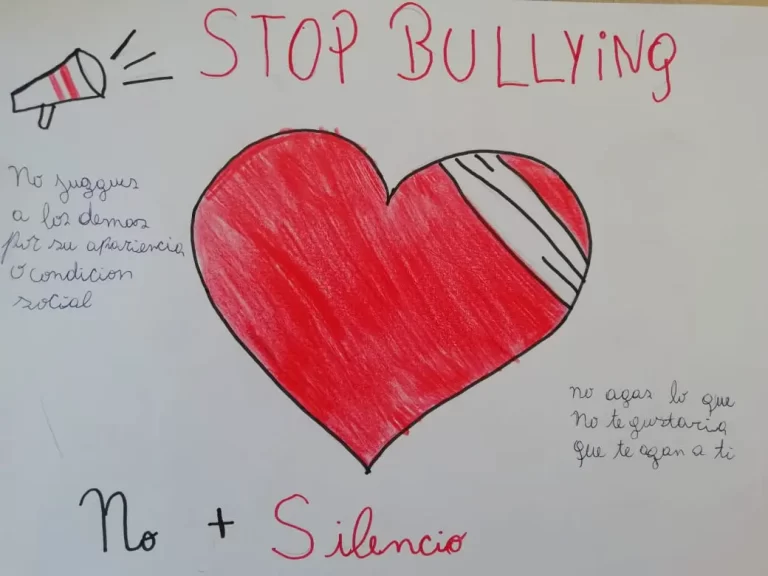 STOP BULLYiNG
No juzgues
a los demas
por su apariencia
o condicion
social
no agas lo que
No te gustaria
que te agan a ti
No + Silencio